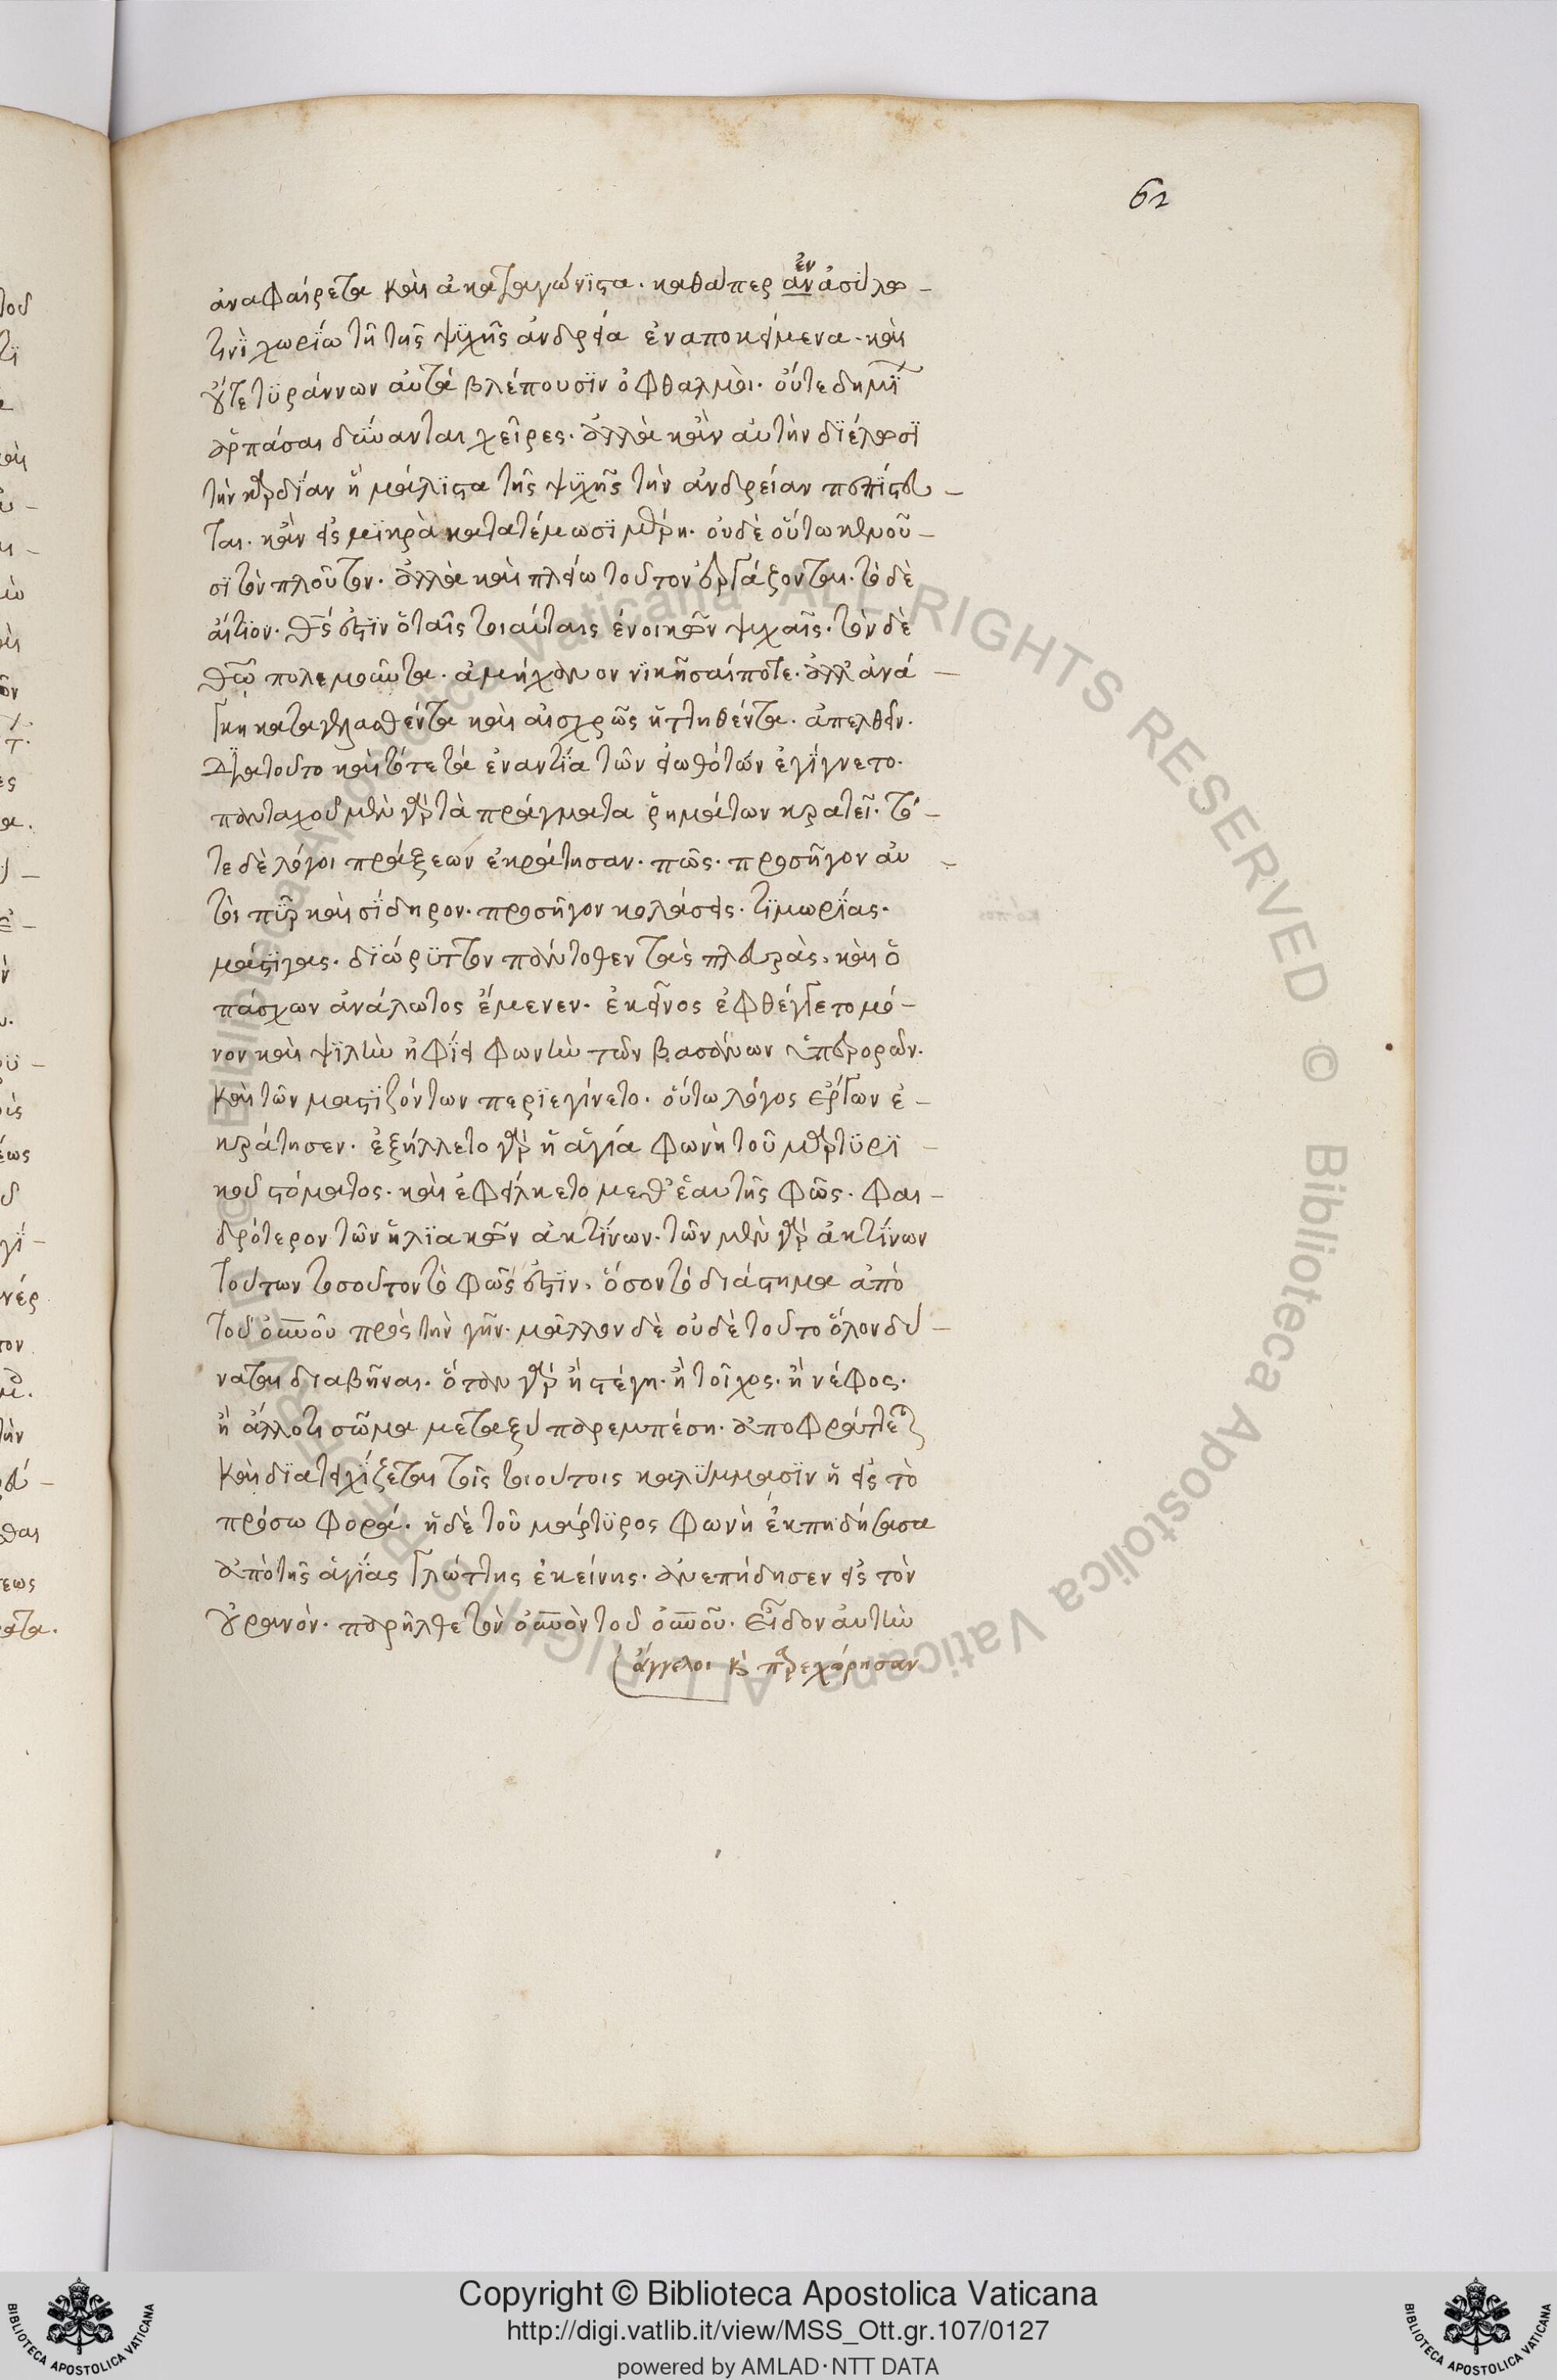 62
ἀναφαίρετα καὶ ἀκαταγώνιστα. καθάπερ ἂν ἐν ἀσύλω
τινὶ χωρίω τῆ τῆς ψυχῆς ἀνδρεία ἐναποκείμενα. καὶ
οὔτε τυράννων αὐτὰ βλέπουσιν ὀφθαλμοὶ. οὔτε δημί
ἁρπάσαι δύνανται χεῖρες. ἀλλὰ κἂν αὐτὴν διέλωσι
τὴν καρδίαν ἣ μάλιστα τῆς ψυχῆς τὴν ἀνδρείαν πεπίστευ
ται. κἂν εἰς μικρὰ κατατέμωσι μέρη. οὐδὲ οὕτω κενοῦ
σι τὸν πλοῦτον. ἀλλὰ καὶ πλείω τοῦτον ἐργάζονται. τὸ δὲ
αἴτιον. θς ἐστιν ὁ ταῖς τοιαύταις ἐνοικῶν ψυχαῖς. τὸν δὲ
θῶ πολεμοῦντα. ἀμήχανον νικῆσαί ποτε. ἀλλ' ἀνά
γκη καταγελασθέντα καὶ αἰσχρῶς ἡττηθέντα. ἀπελθεῖν.
Διὰ τοῦτο καὶ τότε τὰ ἐναντία τῶν εἰωθότων ἐγίγνετο.
πανταχοῦ μὲν γὰρ τὰ πράγματα ῥημάτων κρατεῖ. τό
τε δὲ λόγοι πράξεων ἐκράτησαν. πῶς. προσῆγον αὐ
τῶι πῦρ καὶ σίδηρον. προσῆγον κολάσεις. τιμωρίας.
μάστιγας. διώρυττον πάντοθεν τὰς πλευρὰς. καὶ ὁ
πάσχων ἀνάλωτος ἔμενεν. ἐκεῖνος ἐφθέγγετο μό
νον καὶ ψιλὴν ἠφίει φωνὴν τῶν βασάνων ὑπερορῶν.
καὶ τῶν μαστιζόντων περιεγίνετο. οὕτω λόγος ἔργων ἐ
κράτησεν. ἐξήλλετο γὰρ ἡ ἁγία φωνὴ τοῦ μαρτυρι
κοῦ στόματος. καὶ ἐφείλκετο μεθ' ἑαυτῆς φῶς. φαι
δρότερον τῶν ἡλιακῶν ἀκτίνων. τῶν μὲν γὰρ ἀκτίνων
τούτων τοσοῦτον τὸ φῶς ἐστιν. ὅσον τὸ διάστημα ἀπὸ
τοῦ οὐνοῦ πρὸς τὴν γῆν. μᾶλλον δὲ οὐδὲ τοῦτο ὅλον δύ
ναται διαβῆναι. ὅταν γὰρ ἢ στέγη. ἢ τοῖχος. ἢ νέφος.
ἢ ἄλλο τι σῶμα μεταξὺ παρεμπέση. ἀποφράττεται
καὶ διατειχίζεται τοῖς τοιούτοις καλύμμασιν ἡ εἰς τὸ
πρόσω φορά. ἡ δὲ τοῦ μάρτυρος φωνὴ ἐκπηδήσασα
ἀπὸ τῆς ἁγίας γλώττης ἐκείνης. ἀνεπήδησεν εἰς τὸν
οὐρανὸν. παρῆλθε τὸν οὐνὸν τοῦ οὐνοῦ. εἶδον αὐτὴν
ἄγγελοι καὶ παρεχώρησαν
Copyright © Biblioteca Apostolica Vaticana
http://digi.vatlib.it/view/MSS_Ott.gr.107/0127
powered by AMLAD·NTT DATA